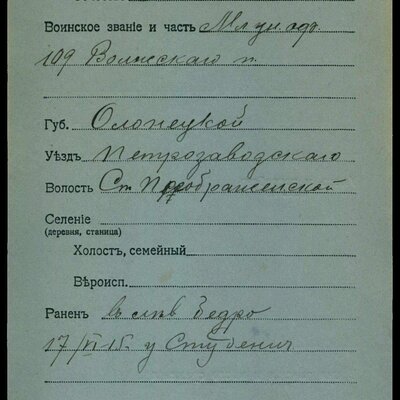 Воинское званіе и часть Мл ун оф
109 Волжскаго п.
Губ. Олонецкой
Уѣздъ Петрозаводскаго
Волость Ст. Преображенской
Селеніе
(деревня, станица)
Холостъ, семейный
Вѣроисп.
Раненъ в лѣв бедро
17/VI-15. у Студенич